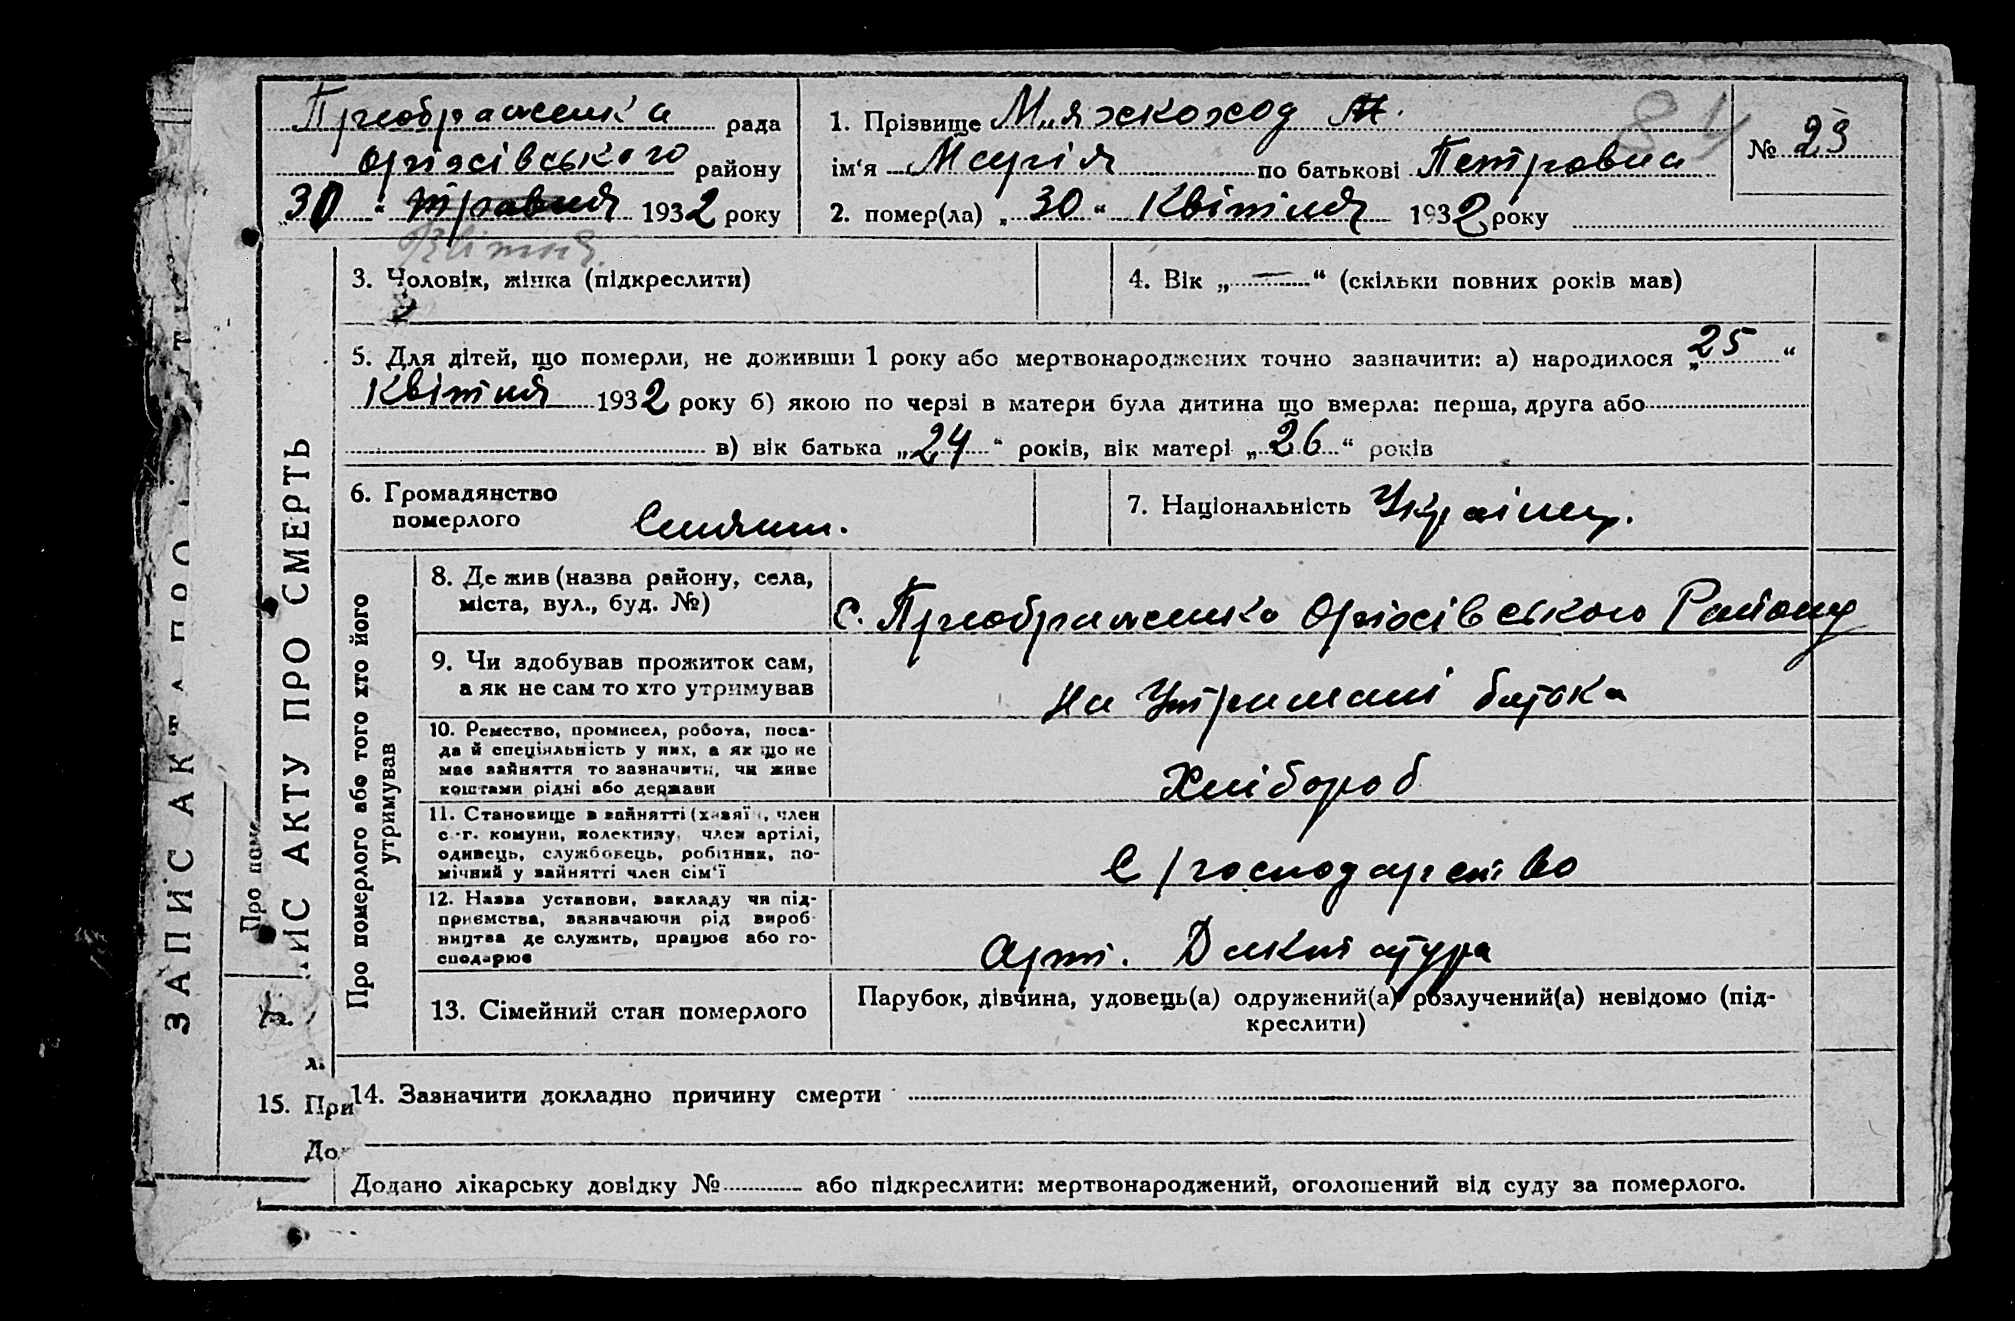 Преображенка рада
Оріхівського району
„30“ травня 1932 року
Квітня
1. Прізвище М'якоход М.
ім‘я Марія по батькові Петровна
2. помер(ла) „30“ Квітня 1932 року
84
№ 23
3. Чоловік, жінка (підкреслити)
4. Вік „—“ (скільки повних років мав)
5. Для дітей, що померли, не доживши 1 року або мертвонароджених точно зазначити: а) народилося „25“
Квітня 1932 року б) якою по черзі в матери була дитина що вмерла: перша, друга або
в) вік батька „24“ років, вік матері „26“ років
6. Громадянство
померлого
7. Національність Українц.
ЗАПИС АКТ ПРО
ИС АКТУ ПРО СМЕРТЬ
Про пом
Про померлого або того хто його
утримував
8. Де жив (назва району, села,
міста, вул., буд. №)
с. Преображенка Оріхівського Району
9. Чи здобував прожиток сам,
а як не сам то хто утримував
На Утримані батька
10. Ремество, промисел, робота, поса-
да й спеціяльність у них, а як що не
має зайняття то зазначити, чи живе
коштами рідні або держави
Хлібороб
11. Становище в зайнятті (хазяїн, член
с.-г. комуни, колективу, член артілі,
одивець, службовець, робітник, по-
мічний у зайнятті член сім‘ї
С/господарство
12. Назва установи, закладу чи під-
приємства, зазначаючи рід вироб-
ництва де служить, працює або го-
сподарює
Арт. Диктатура
13. Сімейний стан померлого
Парубок, дівчина, удовець(а) одружений(а) розлучений(а) невідомо (під-
креслити)
14. Зазначити докладно причину смерти
15. При
До
Додано лікарську довідку № або підкреслити: мертвонароджений, оголошений від суду за померлого.